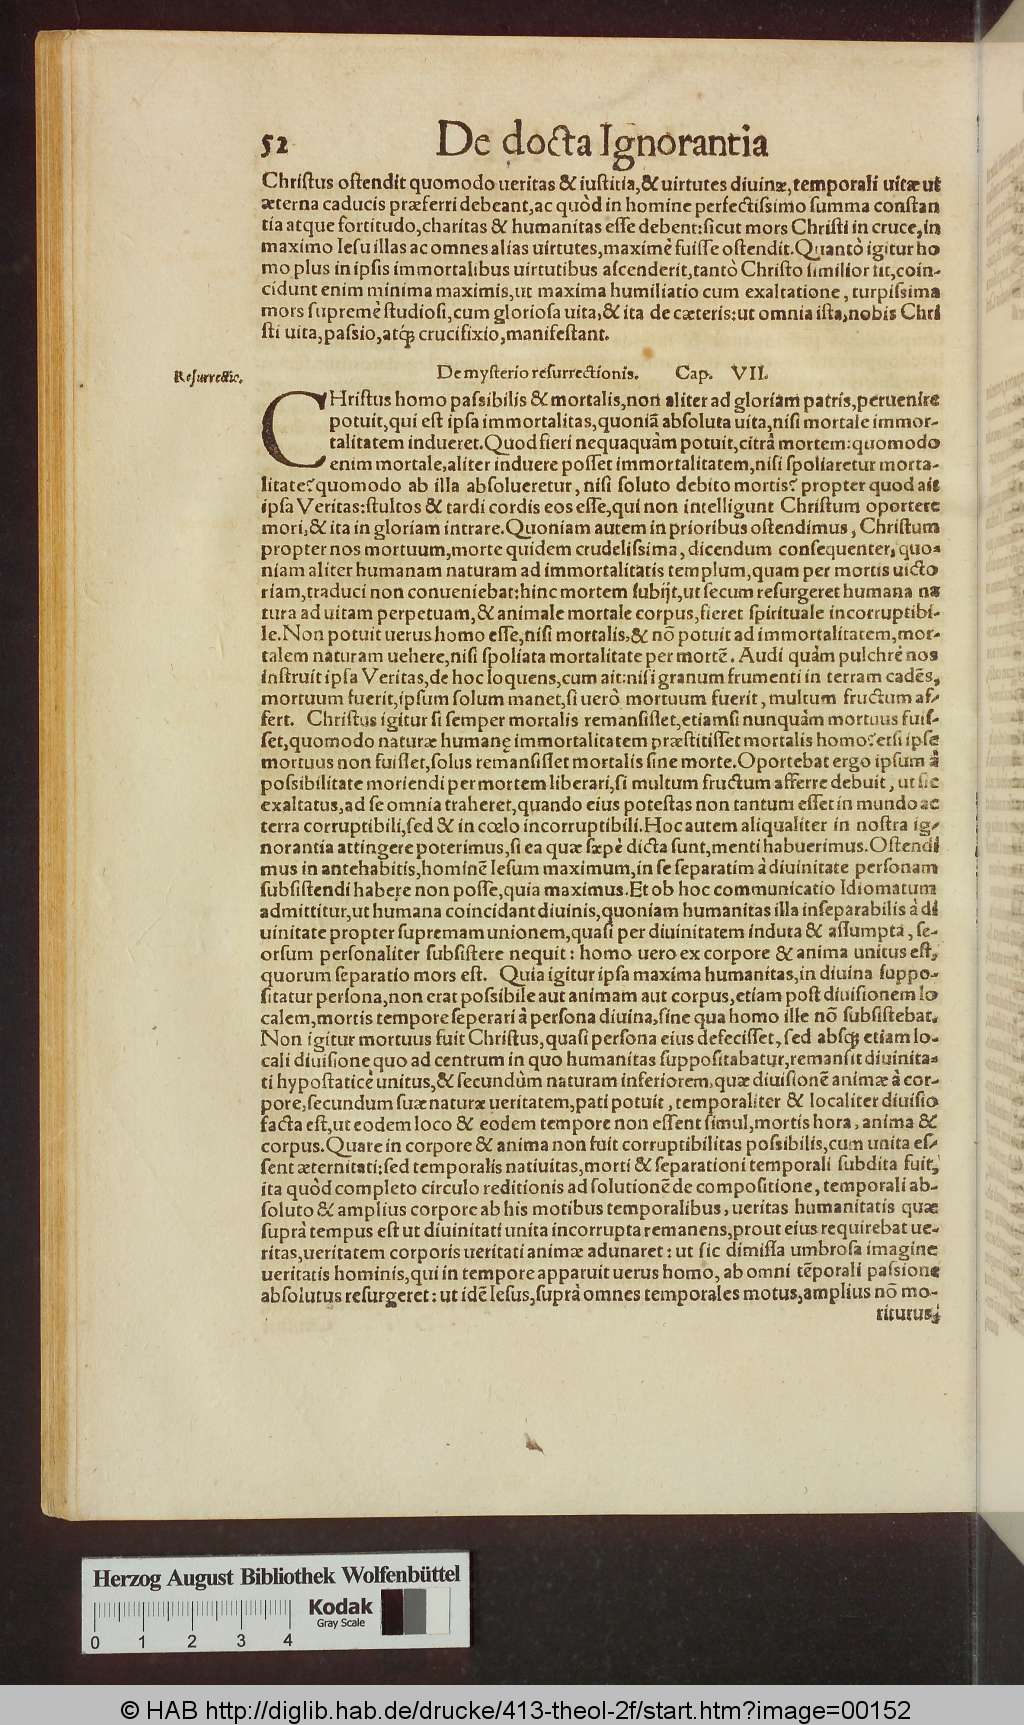 52 De docta Ignorantia
Christus ostendit quomodo ueritas & iustitia, & uirtutes diuinæ, temporali uitæ ut
æterna caducis præferri debeant, ac quòd in homine perfectissimo summa constan
tia atque fortitudo, charitas & humanitas esse debent: sicut mors Christi in cruce, in
maximo Iesu illas ac omnes alias uirtutes, maximè fuisse ostendit. Quantò igitur ho
mo plus in ipsis immortalibus uirtutibus ascenderit, tantò Christo similior fit, coin-
cidunt enim minima maximis, ut maxima humiliatio cum exaltatione, turpissima
mors supremè studiosi, cum gloriosa uita, & ita de cæteris: ut omnia ista, nobis Chri
sti uita, passio, atq; crucifixio, manifestant.
De mysterio resurrectionis. Cap. VII.
Resurrectio.
CHristus homo passibilis & mortalis, non aliter ad gloriam patris, peruenire
potuit, qui est ipsa immortalitas, quoniã absoluta uita, nisi mortale immor-
talitatem indueret. Quod fieri nequaquàm potuit, citrà mortem: quomodo
enim mortale, aliter induere posset immortalitatem, nisi spoliaretur morta-
litate? quomodo ab illa absolueretur, nisi soluto debito mortis? propter quod ait
ipsa Veritas: stultos & tardi cordis eos esse, qui non intelligunt Christum oportere
mori, & ita in gloriam intrare. Quoniam autem in prioribus ostendimus, Christum
propter nos mortuum, morte quidem crudelissima, dicendum consequenter, quo-
niam aliter humanam naturam ad immortalitatis templum, quam per mortis uicto
riam, traduci non conueniebat: hinc mortem subijt, ut secum resurgeret humana na
tura ad uitam perpetuam, & animale mortale corpus, fieret spirituale incorruptibi-
le. Non potuit uerus homo esse, nisi mortalis, & nõ potuit ad immortalitatem, mor-
talem naturam uehere, nisi spoliata mortalitate per mortẽ. Audi quàm pulchrè nos
instruit ipsa Veritas, de hoc loquens, cum ait: nisi granum frumenti in terram cadẽs,
mortuum fuerit, ipsum solum manet, si uerò mortuum fuerit, multum fructum af-
fert. Christus igitur si semper mortalis remansisset, etiamsi nunquàm mortuus fuis-
set, quomodo naturæ humanę immortalitatem præstitisset mortalis homo? etsi ipse
mortuus non fuisset, solus remansisset mortalis sine morte. Oportebat ergo ipsum à
possibilitate moriendi per mortem liberari, si multum fructum afferre debuit, ut sic
exaltatus, ad se omnia traheret, quando eius potestas non tantum esset in mundo ac
terra corruptibili, sed & in cœlo incorruptibili. Hoc autem aliqualiter in nostra ig-
norantia attingere poterimus, si ea quæ sæpè dicta sunt, menti habuerimus. Ostendi
mus in antehabitis, hominẽ Iesum maximum, in se separatim à diuinitate personam
subsistendi habere non posse, quia maximus. Et ob hoc communicatio Idiomatum
admittitur, ut humana coincidant diuinis, quoniam humanitas illa inseparabilis à di
uinitate propter supremam unionem, quasi per diuinitatem induta & assumpta, se-
orsum personaliter subsistere nequit: homo uero ex corpore & anima unitus est,
quorum separatio mors est. Quia igitur ipsa maxima humanitas, in diuina suppo-
sitatur persona, non erat possibile aut animam aut corpus, etiam post diuisionem lo
calem, mortis tempore seperari à persona diuina, sine qua homo ille nõ subsistebat.
Non igitur mortuus fuit Christus, quasi persona eius defecisset, sed absq; etiam lo-
cali diuisione quo ad centrum in quo humanitas suppositabatur, remansit diuinita-
ti hypostaticè unitus, & secundùm naturam inferiorem, quæ diuisionẽ animæ à cor-
pore, secundum suæ naturæ ueritatem, pati potuit, temporaliter & localiter diuisio
facta est, ut eodem loco & eodem tempore non essent simul, mortis hora, anima &
corpus. Quare in corpore & anima non fuit corruptibilitas possibilis, cum unita es-
sent æternitati: sed temporalis natiuitas, morti & separationi temporali subdita fuit,
ita quòd completo circulo reditionis ad solutionẽ de compositione, temporali ab-
soluto & amplius corpore ab his motibus temporalibus, ueritas humanitatis quæ
suprà tempus est ut diuinitati unita incorrupta remanens, prout eius requirebat ue-
ritas, ueritatem corporis ueritati animæ adunaret: ut sic dimissa umbrosa imagine
ueritatis hominis, qui in tempore apparuit uerus homo, ab omni tẽporali passione
absolutus resurgeret: ut idẽ Iesus, suprà omnes temporales motus, amplius nõ mo-
riturus,
Herzog August Bibliothek Wolfenbüttel
Kodak
Gray Scale
0 1 2 3 4
© HAB http://diglib.hab.de/drucke/413-theol-2f/start.htm?image=00152